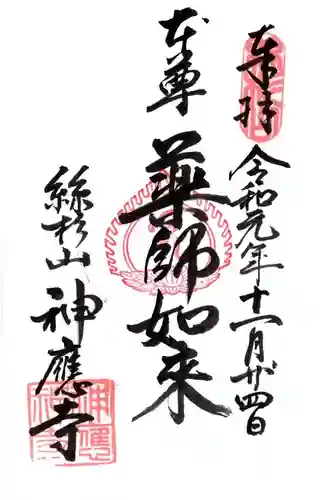 奉拝
令和元年十一月廿四日
本尊
藥師如来
絲杉山
神應寺